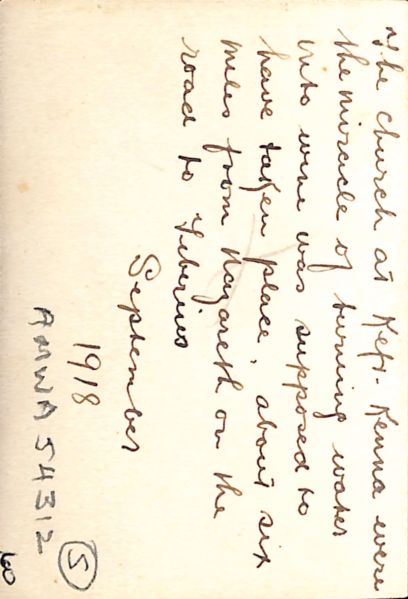 The church at Kefr. Kenna were
the miracle of turning water
into wine was supposed to
have taken place, about six
miles from Nazareth on the
road to Tiberius
September
1918
AMWA 54312
5
60